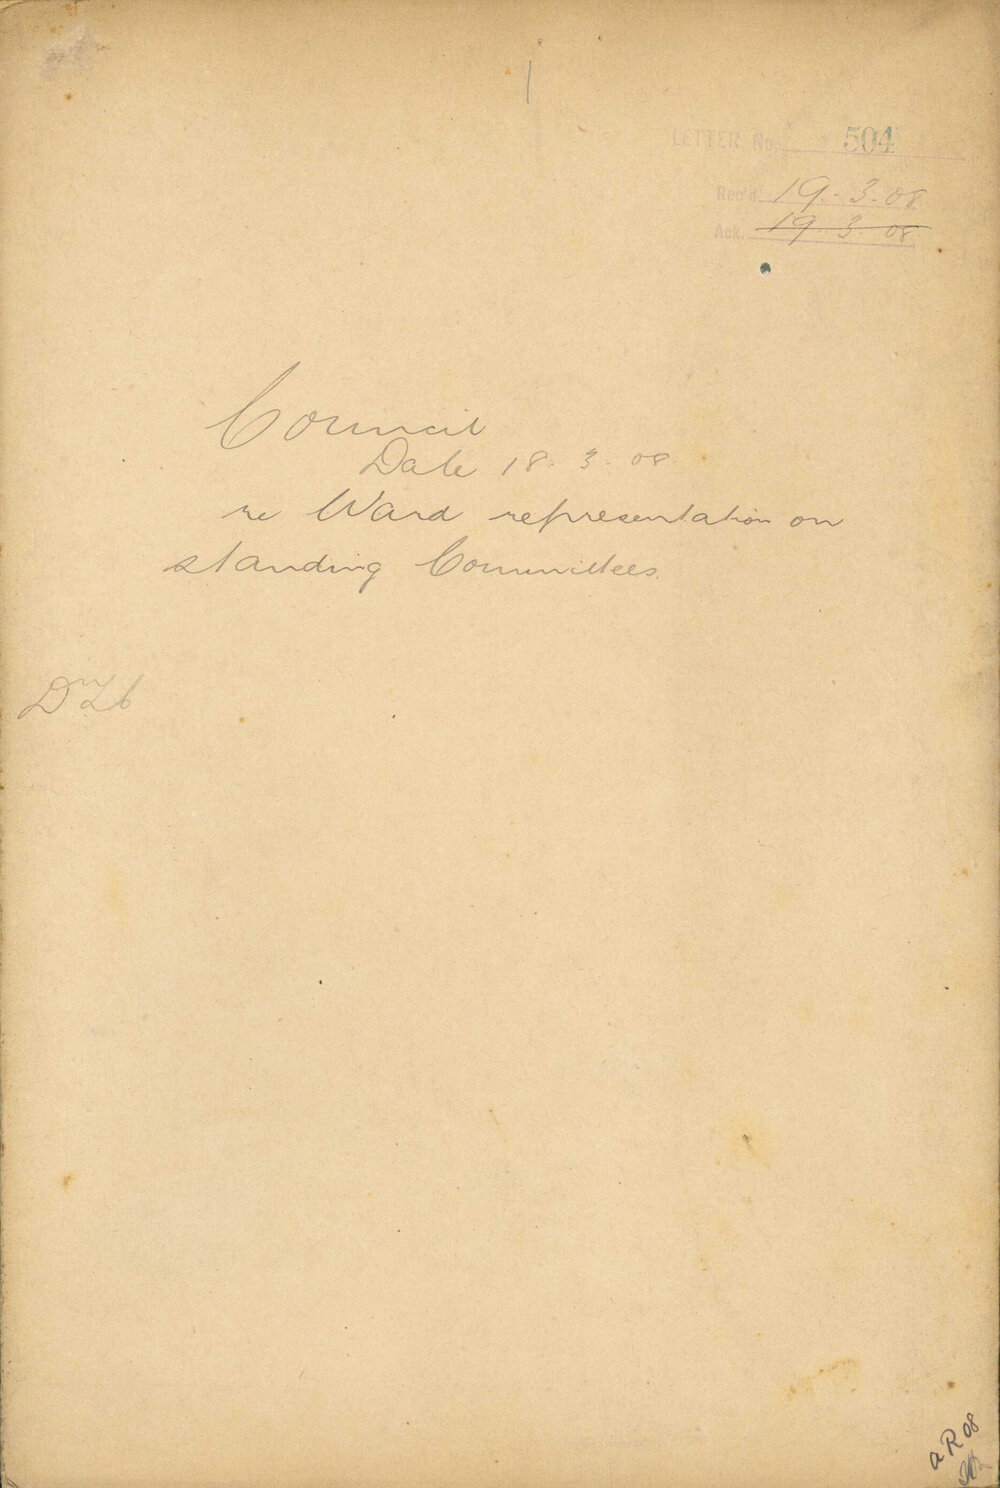 LETTER No. 504
Rec'd. 19.3.08
Ack. 19 3 08
Council
Date 18.3.08
re Ward representation on
standing Committees.
aR 08